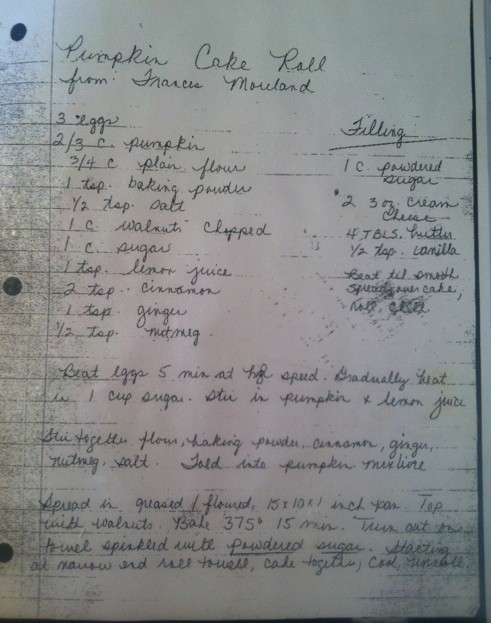 Pumpkin Cake Roll
from: Frances Moreland
3 eggs
2/3 c. pumpkin
3/4 c plain flour
1 tsp. baking powder
1/2 tsp. salt
1 c walnuts chopped
1 c. sugar
1 tsp. lemon juice
2 tsp. cinnamon
1 tsp. ginger
1/2 tsp. nutmeg.
Filling
1 c. powdered
sugar
2 3 oz. cream
cheese
4 TBLS. butter
1/2 tsp. vanilla
Beat til smooth
spread over cake,
roll, chill
Beat eggs 5 min at high speed. Gradually beat
in 1 cup sugar. Stir in pumpkin & lemon juice
Stir together flour, baking powder, cinnamon, ginger,
nutmeg, salt. Fold into pumpkin mixture
Spread in greased / floured, 15x10x1 inch pan. Top
with walnuts. Bake 375° 15 min. Turn out on
towel spinkled with powdered sugar. Starting
at narrow end roll towell, cake together, cool, unroll.